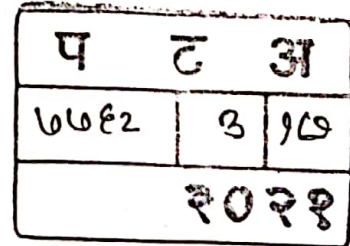 प ट अ
७७६२ ३ १७
२०२१